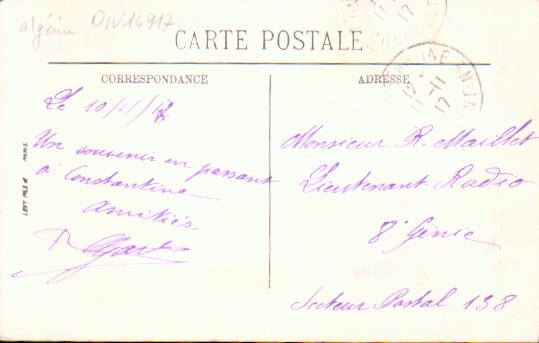 algérie DIV14917
CARTE POSTALE
CORRESPONDANCE
ADRESSE
Le 10/1/17
Un souvenir en passant
à Constantine
Amitiés.
Monsieur R. Maillet
Lieutenant Radio
8e Génie
Secteur Postal 138
LEVY FILS & PARIS